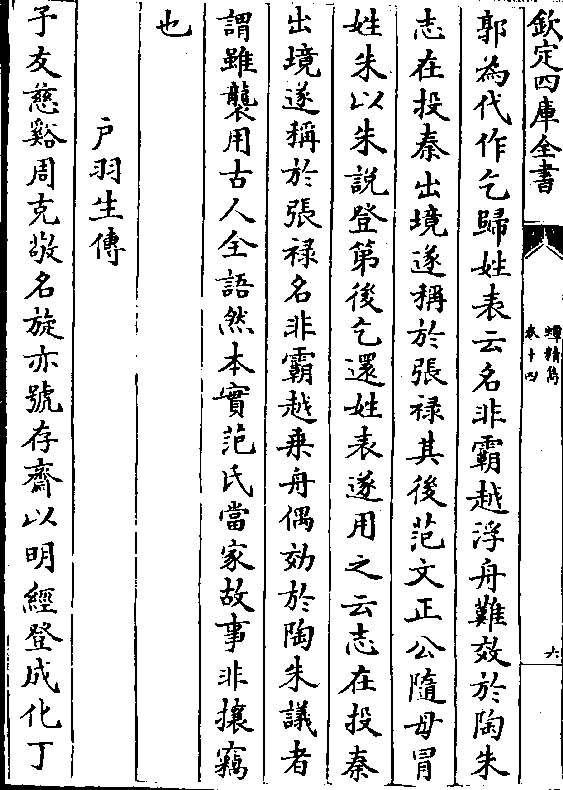 欽定四庫全書
蟫精雋
卷十四
六
郭為代作乞歸姓表云名非霸越浮舟難效於陶朱
志在投秦出境遂稱於張祿其後范文正公隨母冒
姓朱以朱說登第後乞還姓表遂用之云志在投秦
出境遂稱於張祿名非霸越乗舟偶効於陶朱議者
謂雖襲用古人全語然本實范氏當家故事非攘竊
也
户羽生傳
予友慈谿周克敬名旋亦號存齋以明經登成化丁